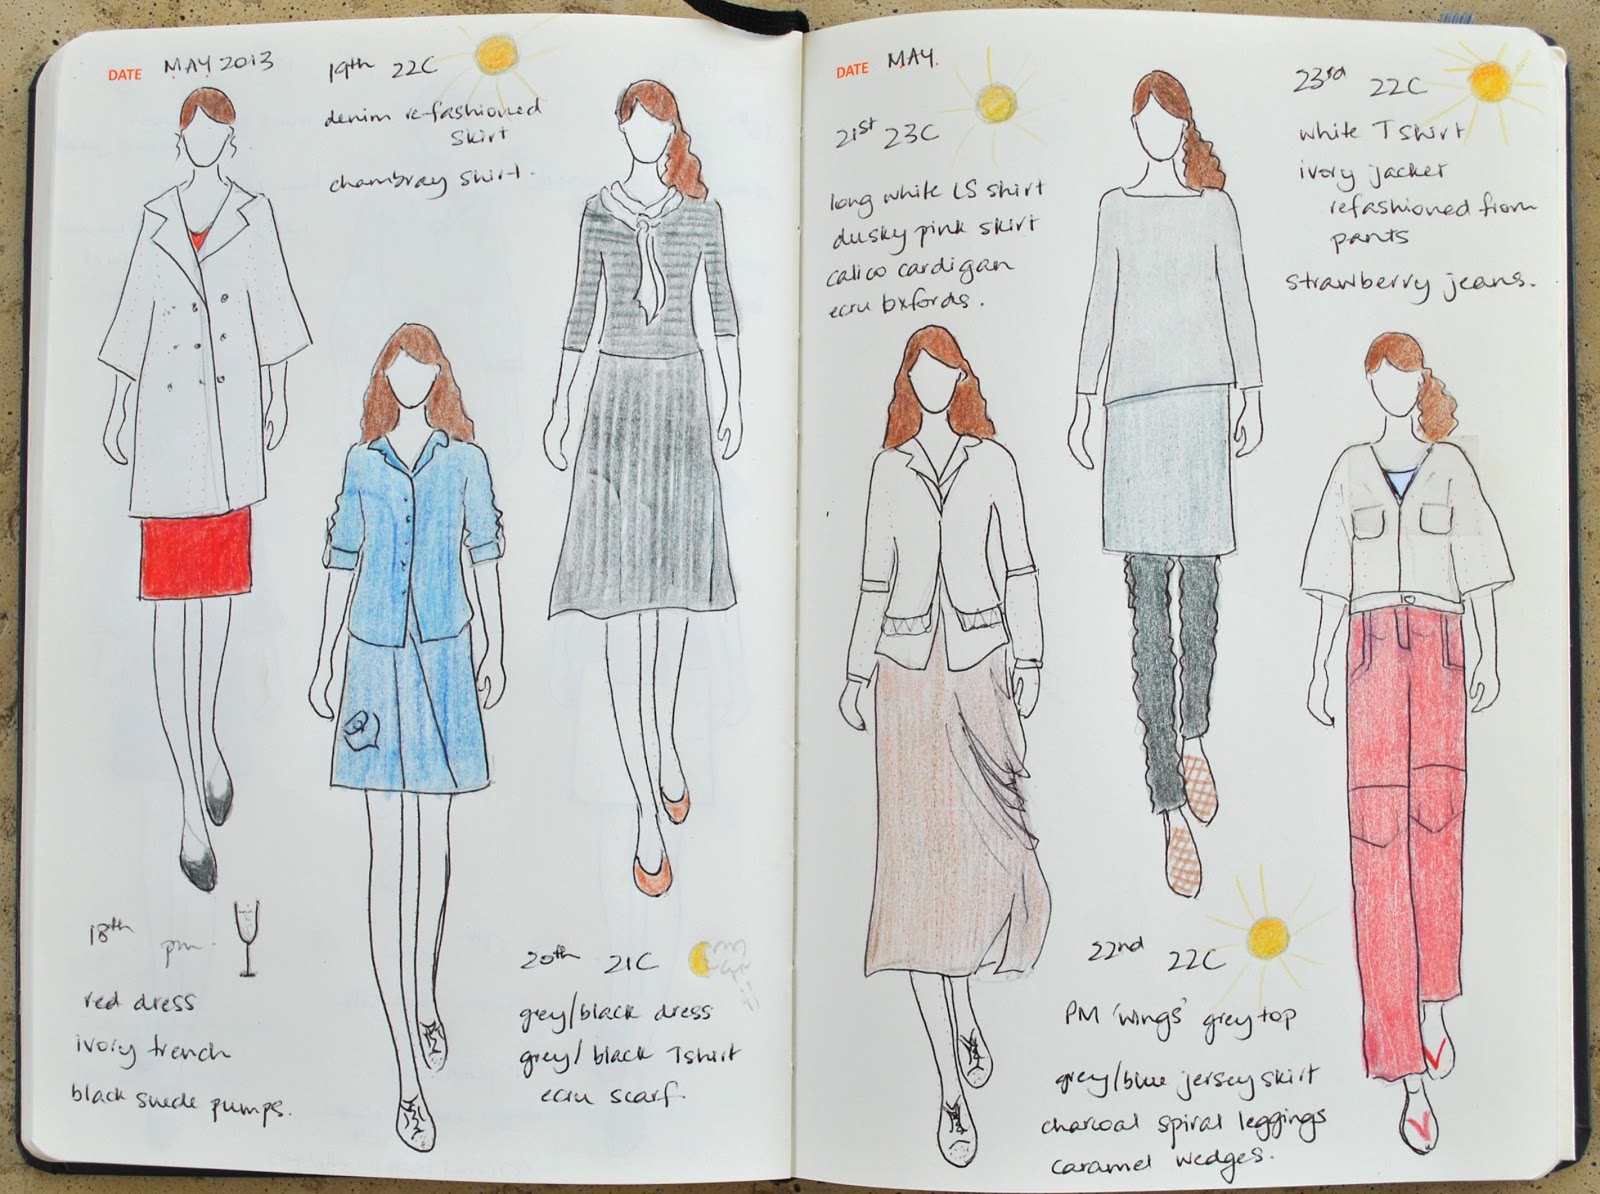 DATE MAY 2013
19th 22C
denim re-fashioned
skirt
chambray shirt.
18th pm.
red dress
ivory trench
black suede pumps.
20th 21C
grey/black dress
grey/black Tshirt
ecru scarf.
DATE MAY.
21st 23C
long white LS shirt
dusky pink skirt
calico cardigan
ecru oxfords.
23rd 22C
white T shirt
ivory jacket
refashioned from
pants
strawberry jeans.
22nd 22C
PM 'wings' grey top
grey/blue jersey skirt
charcoal spiral leggings
caramel wedges.